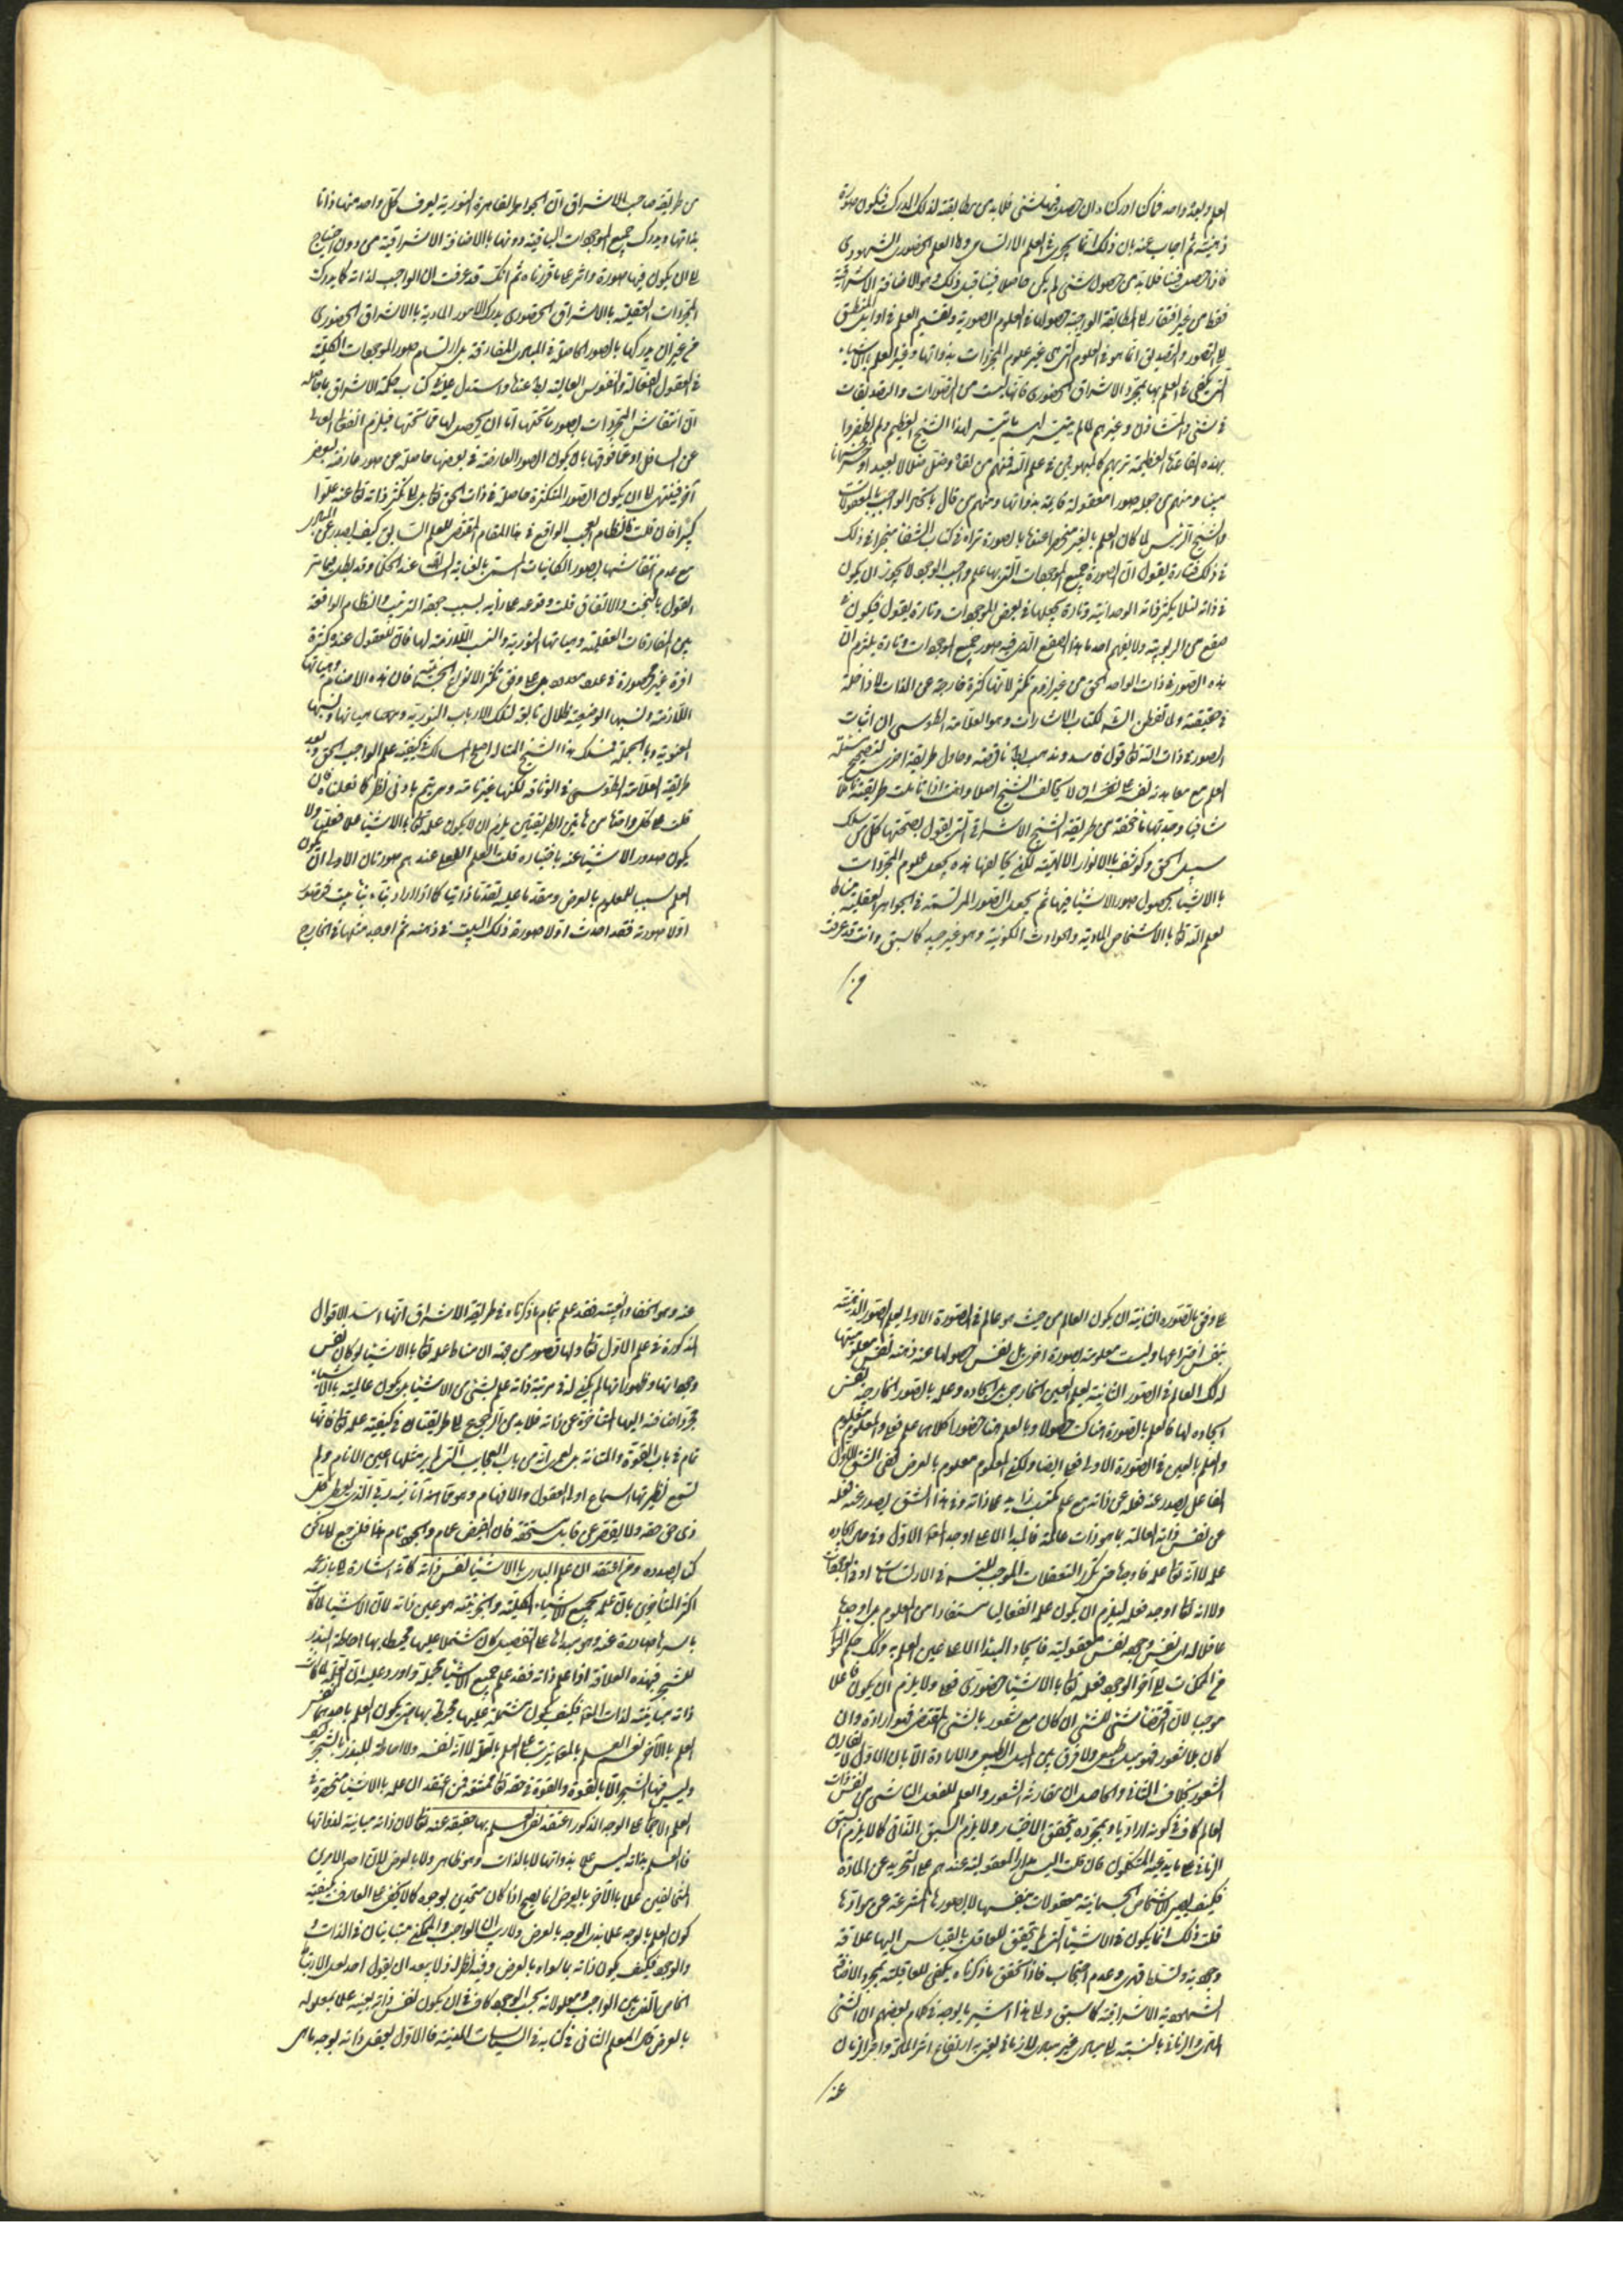 العلم والعدم واحد فما كنا ادركناه ان حصل فينا شئ فلابد من مطابقته لذلك المدرك فيكون صورة
ذهنية ثم اجاب عنه بان ذلك انما يجرى فى العلم الارتسامى واما العلم الحضورى الشهودى
فاذا حصل فينا فلابد من حصول شئ لم يكن حاصلا فينا قبل ذلك وهو الاضافة الاشراقية
فقط من غير افتقار الى المطابقة الواجب حصولها فى العلوم الصورية وتقسيم العلم فى اوايل المنطق
الى التصور والتصديق انما هو فى العلوم التى هى غير علوم المجردات بذواتها وغير العلم بالاشياء
التى يكفى فى العلم بها مجرد الاشراق الحضورى فانها ليست من التصورات والتصديقات
فى شئ والمشاؤن وغيرهم لما لم يتيسر لهم ما تيسر لهذا الشيخ العظيم ولم يظفروا
بهذه القاعدة العظيمة تريهم كالمبهوتين فى علم الله فمنهم من نفاه وضل ضلالا بعيدا وخسر خسرانا
مبينا ومنهم من جعله صورا معقولة قايمة بذواتها ومنهم من قال باتحاد الواجب بالمعقولات
والشيخ الرئيس لما كان العلم بالغير منحصرا عنده بالصورة تراه فى كتاب الشفا متحيرا فى ذلك
فى ذلك فتارة يقول ان صورة جميع الموجودات التى بها علم واجب الوجود لا يجوز ان يكون
فى ذاته لئلا يتكثر ذاته الوحدانية وتارة يجعلها فى بعض الموجودات وتارة يقول فيكون فى
صقع من الربوبية ولا يفهم احد ما هذا الصقع الذى فيه صور جميع الموجودات وتارة يلتزم ان
هذه الصور فى ذات الواحد الحق من غير لزوم تكثر لانها كثرة خارجة عن الذات لا داخلة
فى حقيقته ولما تفطن الشارح لكتاب الاشارات وهو العلامة الطوسى ان اثبات
الصور فى ذات الله تعالى قول فاسد ومذهب باطل ناقضه وحاول طريقة اخرى لتصحيح مسئلة
العلم مع معاهدة نفسه على نفسه ان لا يخالف الشيخ اصلا وانت اذا تاملت طريقته تاملا
شافيا وجدتها ماخوذة من طريقة الشيخ الاشراقى التى يقول بصحتها كل من سلك
سبيل الحق وكوشف بالانوار الالهية لكن يخالفها هذه بجعل علوم المجردات
بالاشيا بحصول صور الاشيا فيها ثم بجعل الصور المرتسمة فى الجواهر العقلية مناطا
لعلم الله تعالى بالاشخاص المادية والحوادث الكونية وهو غير جيد كما سبق وانت قد عرفت
من
من طريقة صاحب الاشراق ان الجواهر القاهرة النورية يعرف كل واحد منها ذاتها
بذاتها ويدرك جميع الموجودات الباقية دونها بالاضافة الاشراقية من دون احتياج
الى ان يكون فيها صورة واثر على ما قررناه ثم انك قد عرفت ان الواجب لذاته كما يدرك
المجردات العقلية بالاشراق الحضورى يدرك الامور المادية بالاشراق الحضورى
من غير ان يدركها بالصور الحاصلة فى المبادى المفارقة بل ارتسام صور الموجودات الكلية
فى العقول الفعالة والنفوس العالية باطل عنده واستدل عليه فى كتاب حكمة الاشراق بما حاصله
ان انتقاش المجردات بصور ما تحتها اما ان يحصل لها عما تحتها فيلزم انفعال العالى
عن السافل او عما فوقها بان يكون الصور العارضة فى بعضها حاصلة عن صور عارضة لبعض
آخر فينتهى الى ان يكون الصور المتكثرة حاصلة فى ذات الحق تعالى بل الى تكثر ذاته تعالى عنه علوا
كبيرا فان قلت فالنظام العجيب الواقع فى هذا المقام المقتضى للعلم السابق كيف يصدر عن المصدر
مع عدم انتقاشها بصور الكائنات المسمى بالعناية السابقة عند الحكما وقد بطل مباشر
القول بالبخت والاتفاق قلت وقوعه على ما رايه بسبب جهة الترتيب والنظام الواقعة
بين المفارقات العقلية وهيئاتها النورية والنسب اللازمة لها فان للعقول عنده كثرة
وافرة غير محصورة فى عدد بل على وفق تكثر الانواع الجسمية فان هذه الاصنام وهيئاتها
اللازمة ونسبها الوضعية ظلال تابعة لتلك الارباب النورية وهيئاتها ونسبها
المعنوية وبالجملة فمسلك هذا الشيخ المتاله اصلح المسالك فى كيفية علم الواجب الحق وبعده
طريقة العلامة الطوسى فى الوثاقة لكنها غير تامة وهى تتم بادنى نظر كما فعلناه فان
قلت على كل واحد من هاتين الطريقين يلزم ان لا يكون علمه تعالى بالاشيا علما فعليا ولا
يكون صدور الاشيا عنه باختياره قلت العلم الفعلى عندهم صورتان الاولى ان يكون
العلم سببا للمعلوم بالعرض ومتقدما عليه تقدما ذاتيا كما اذا اراد بناء بيت فتصور
اولا صورته فقد احدث اولا صورة ذلك البيت فى ذهنه ثم اوجد مثلها فى الخارج
على وفق الصورة الثانية ان يكون العالم من حيث هو عالم فى الصورة الاولى يعلم الصورة الذهنية
بنفس اختراعها وليست معلومة بصورة اخرى بل بنفس حصولها عنده ذهنه نفس معلوميتها
له كذلك العالم فى الصور الثانية يعلم العين الخارجى بل ايجاده وعلمه بالصور الخارجة نفس
ايجاده لها فالعلم بالصورة هناك حصولا وبالعلم هنا حضورا كلاهما علم فعلى والمعلوم معلوم
والعلم بالعين فى الصورة الاولى فعلى ايضا ولكن المعلوم معلوم بالعرض ففى الشق الاول
الفاعل يصدر عنه فعله عن ذاته مع علم مكتسب زايد على ذاته وفى هذا الشق يصدر عنه فعله
عن نفس ذاته العالمة بما هو ذات عالمة فالمبدا الاعلى اوجد العقل الاول وفى حال ايجاده
علمه لا انه تعالى علمه فاوجده حتى تكرر التعقلات الموجب للتسلسل فى الارتسامات او فى الموجودات
ولا انه تعالى اوجد فعلمه ليلزم ان يكون علمه انفعاليا مستفادا من المعلوم بل اوجدها
عاقلا له اى نفس وجوده نفس معقوليته فايجاد المبدا الاعلى عين العلم به وذلك حكم الثوانى
من الممكنات الى آخر الوجود فعلمه تعالى بالاشيا حضورى فعلى ولا يلزم ان يكون فاعلا
موجبا لان اقتضا شئ للشئ ان كان مع شعور بالشئ المقتضى فهو ارادة وان
كان بلا شعور فهو ميل طبيعى ولا فرق بين الميل الطبيعى والارادة الا بان الاول لا يقارن
الشعور بخلاف الثانى والحاصل ان مقارنة الشعور والعلم للفعل الناشى من نفس ذات
العالم كاف فى كونه اراديا وبمجرده يتحقق الاختيار ولا يلزم السبق الذاتى كما لا يلزم السبق
الزمانى على ما يدعيه المتكلمون فان قلت اليس مدار المعقولية عندهم على التجريد عن المادة
فكيف يصير الاشخاص الجسمانية معقولات بنفسها لا بصورها المنتزعة عن موادها
قلت ذلك انما يكون فى الاشيا التى لم يتحقق للعاقل بالقياس اليها علاقة
وجودية وتسلط قهرى وعدم احتجاب فاذا تحقق ما ذكرناه يكفى للعاقلية مجرد الاضافة
الشهودية الاشراقية كما سبق والى هذا اشير ما يوجد فى كلام بعضهم ان الشئ
المادى والزمانى بالنسبة الى مبادى غير مادى ولا زمانى يعنى به ارتفاع اثر المادة واثر الزمان
عنه
عنه وهو الخفا والغيبة فقد علم تمام ما ذكرناه فى طريقة الاشراق انها اسد الاقوال
المذكورة فى علم الاول تعالى ولها قصور من جهة ان مناط علمه تعالى بالاشيا لو كان نفس
وجوداتها وظهوراتها لم يكن له فى مرتبة ذاته علم بشئ من الاشيا بل يكون عالميته بالاشياء
بمجرد اضافته اليها المتاخرة عن ذاته فلابد من الرجوع الى طريقتنا فى كيفية علمه تعالى فانها
تمام فى باب القوة والمتانة بل لعمرى انه من باب العجايب التى لم ير مثلها اعين الانام ولم
تسمع نظيرتها اسماع اولى العقول والافهام وهو مما من الله به الذى يعطى كل
ذى حق حقه ولا يقصر عن قابل مستحقه فان الفيض عام والجود تام هذا فلنرجع الى ما كنا
كنا بصدده ومن اعتقد ان علم البارى بالاشيا نفس ذاته كانه اشارة الى ما زعمه
اكثر المتأخرين بان علمه بجميع الاشياء الكلية والجزئية هو عين ذاته لان الاشيا لما كانت
باسرها صادرة عنه وهو مبداها على التفصيل كان مشتملا عليها محيط بها احاطة البذر
للشجر فبهذه العلاقة اذا علم ذاته فقد علم جميع الاشيا مجملة واورد عليه ان العلية لما كانت
ذاته مباينة لذات المعلول فكيف يكون مشتملة عليها محيط بها حتى يكون العلم باحدهما نفس
العلم بالآخر نعم العلم بالعلية مما يترتب على العلم بالعلة لا انه نفسه ولا احاطة للبذر بالشجر
وليس فيها الشجر الا بالقوة والقوة فى حقه تعالى ممتنعة فمن اعتقد ان علمه بالاشيا منحصرة فى
العلم الاجمالى على الوجه المذكور اعتقد نفى العلم بها حقيقة عنه تعالى لان ذاته مباينة لذواتها
فالعلم بذاته ليس علما بذواتها لا بالذات وهو ظاهر ولا بالعرض لان احد الامرين
المتخالفين علما بالآخر بالعرض انما يصح اذا كان متحدين بوجه كما لا يخفى على العارف بكيفية
كون العلم بالوجه علما بذى الوجه بالعرض ولا ريب ان الواجب والممكن متباينان فى الذات و
والوجود فكيف يكون ذاته ما سواه بالعرض وفيه نظر اذ لا يبعد ان يقول احد لعل الارتباط
الخاص بالغير بين الواجب ومعلولاته بحسب الوجود كاف فى ان يكون نفس ذاته بعينه علما بمعلوله
بالعرض قال المعلم الثانى فى كتابه فى السياسات المدنية فالاول يعقل ذاته بوجه ما هى